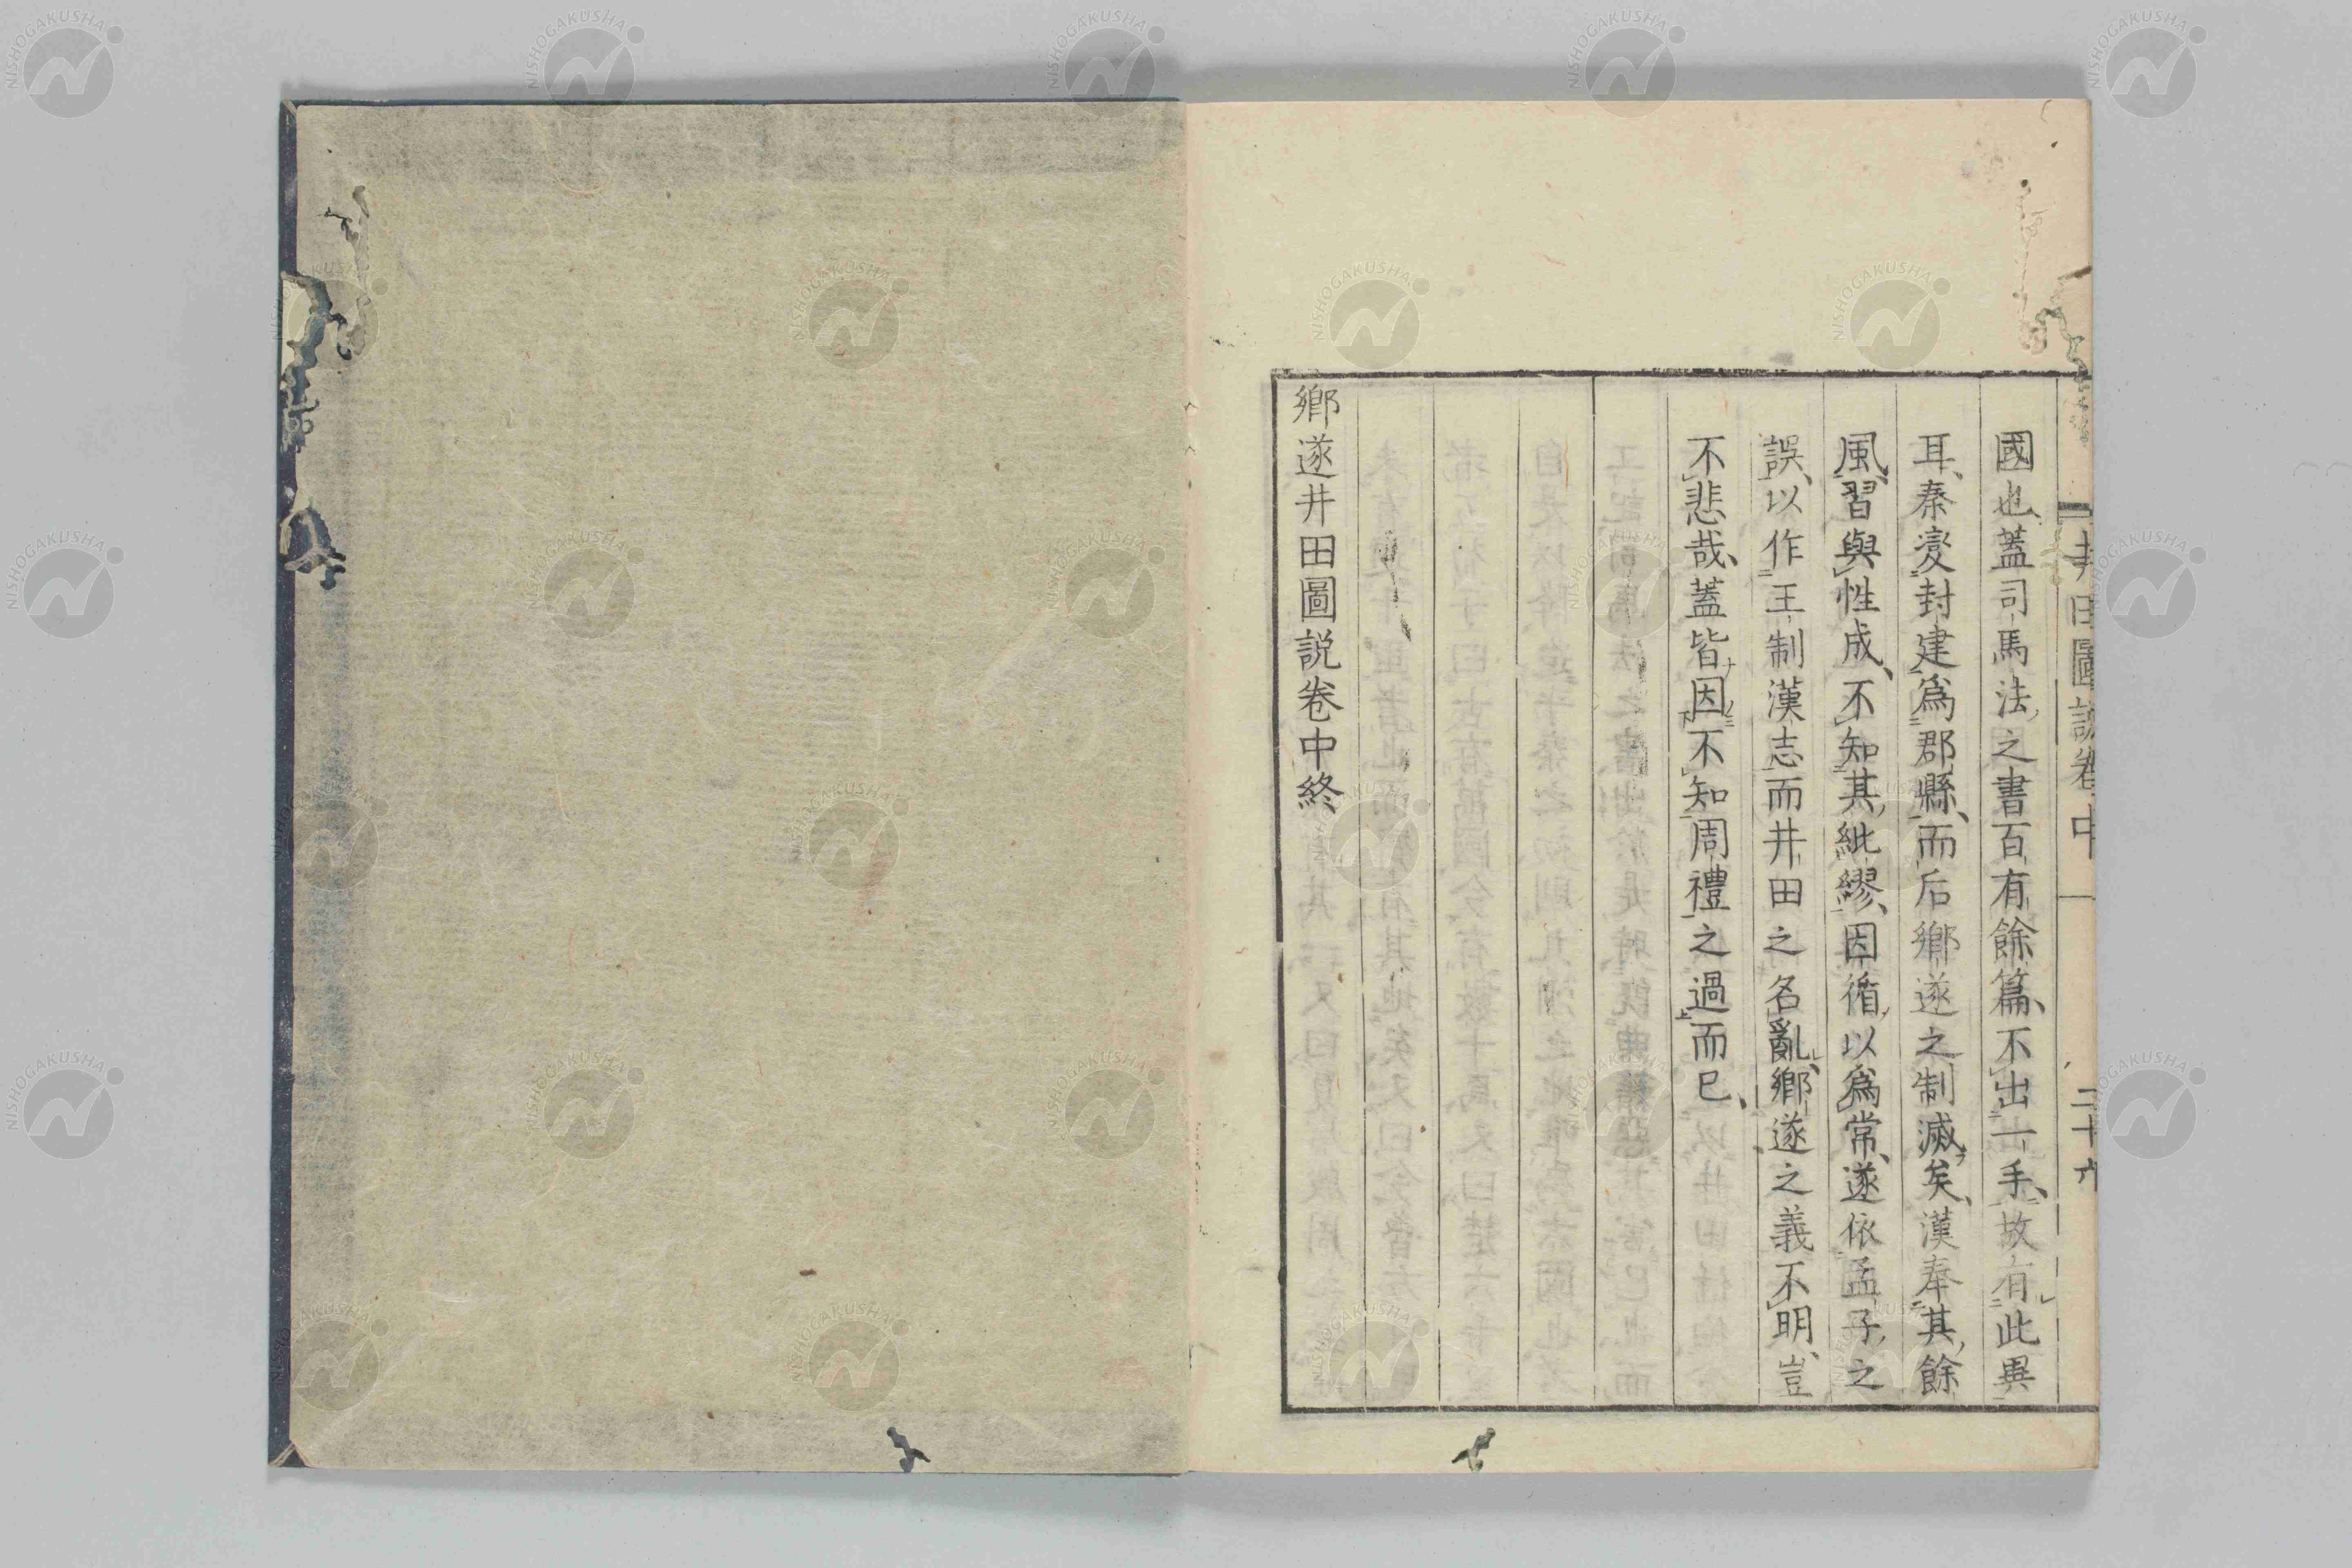 井田圖説卷中 二十六
國也、蓋司馬法之書百有餘篇、不出一手、故有此異
耳、秦変封建爲郡縣、而后鄉遂之制滅矣、漢奉其餘
風、習與性成、不知其紕繆、因循以爲常、遂依孟子之
誤、以作王制漢志而井田之名亂、鄉遂之義不明、豈
不悲哉、蓋皆因不知周禮之過而已、
鄉遂井田圖説卷中終